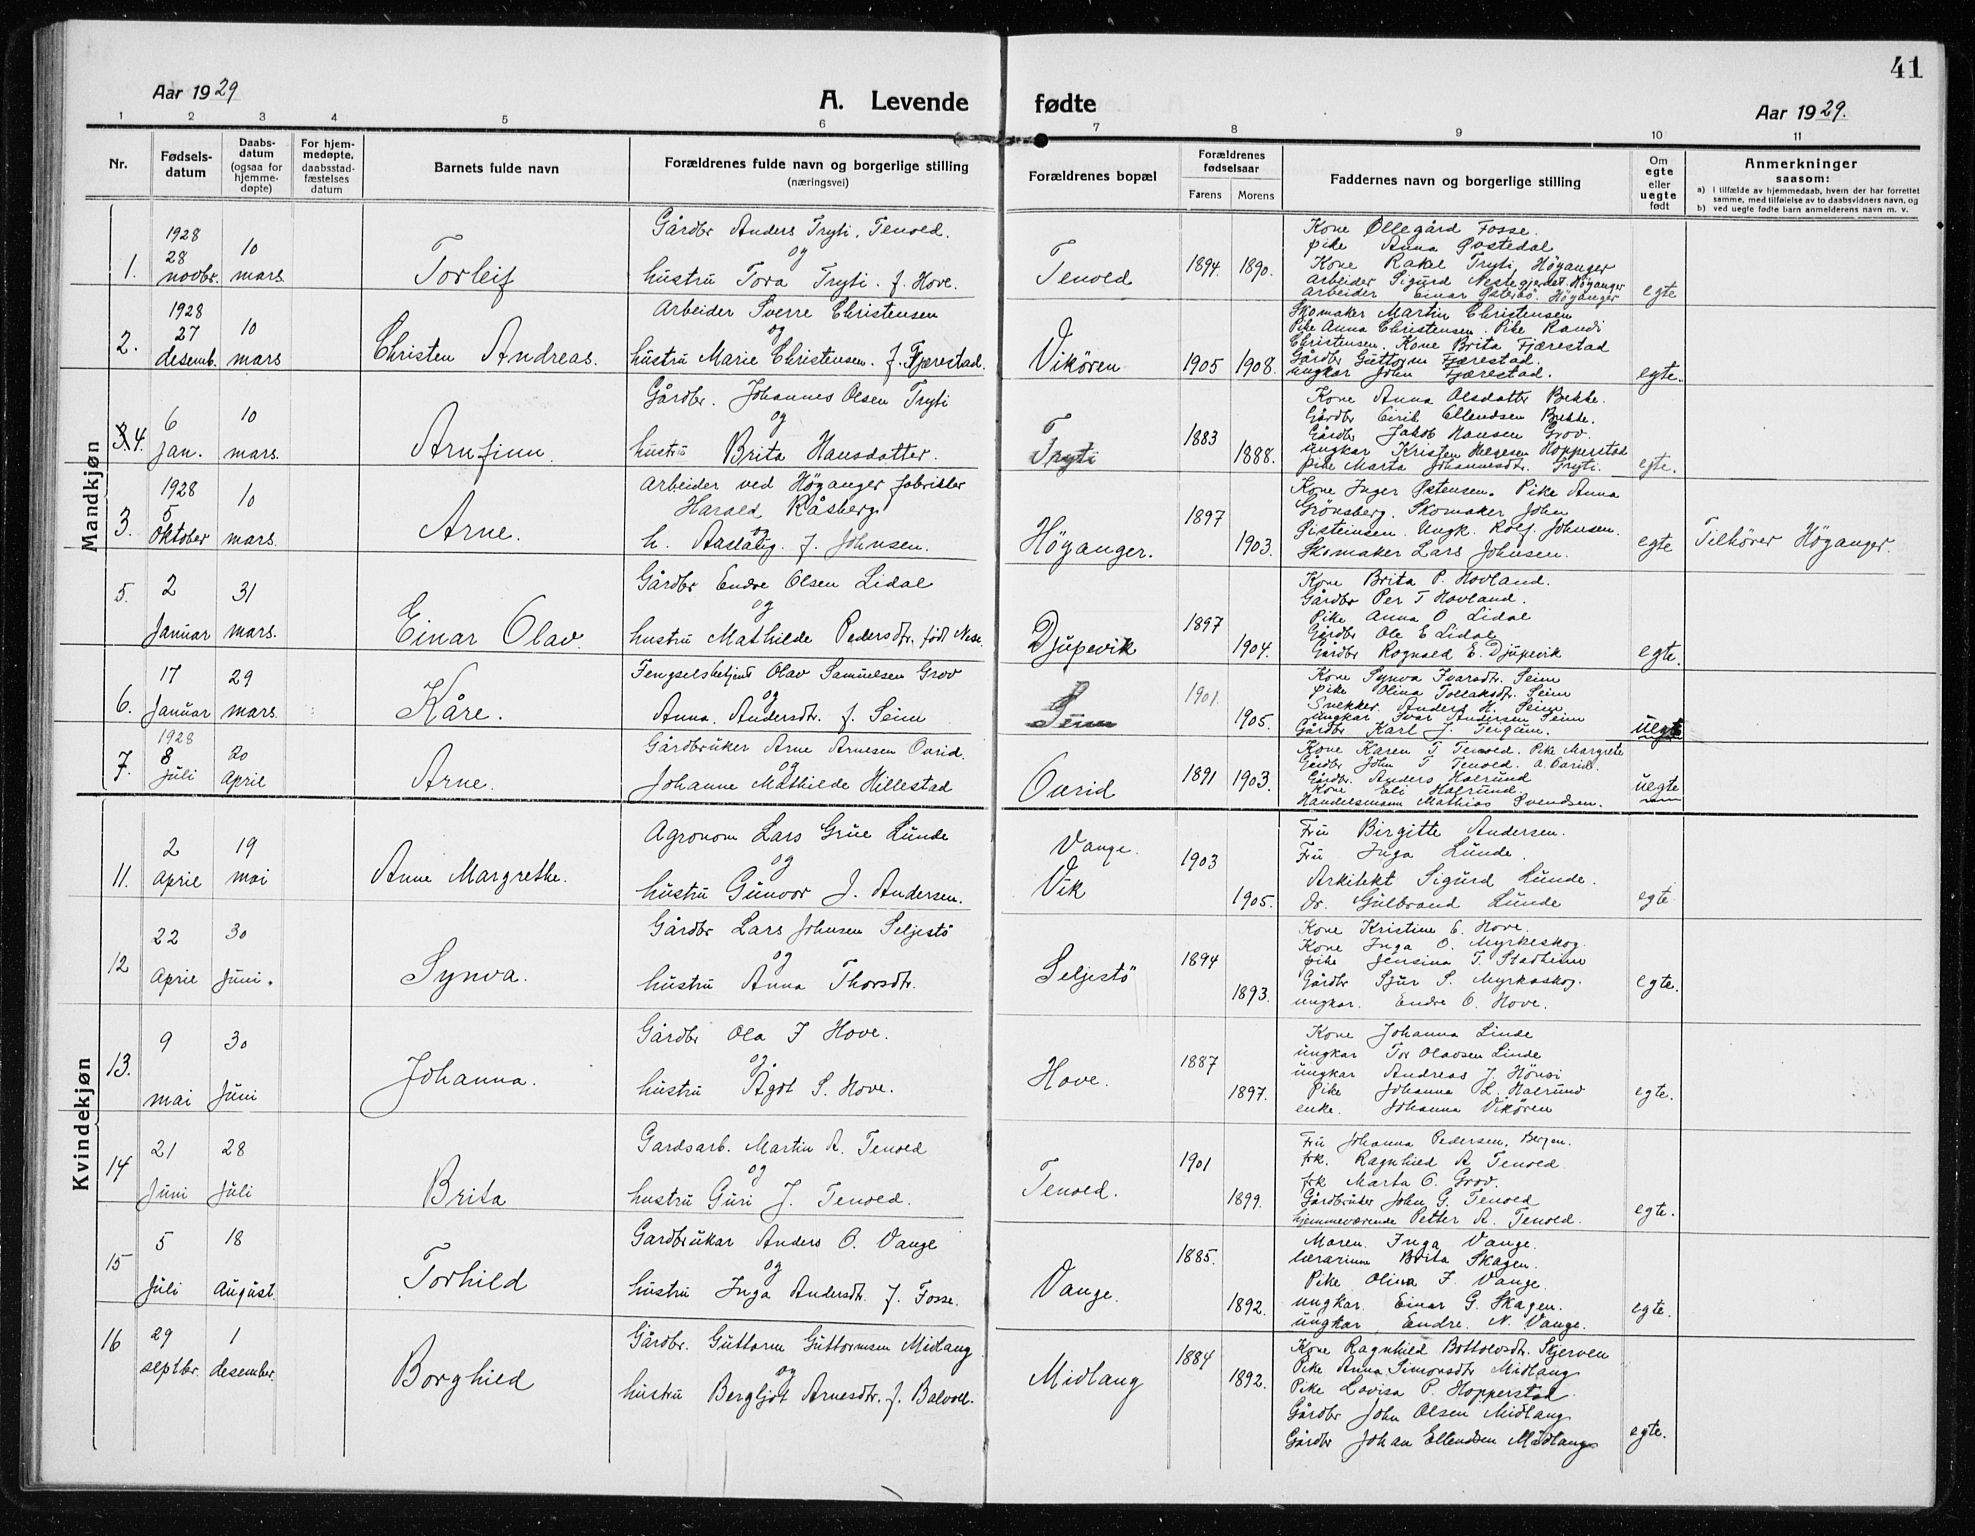 41
Aar 1929
A. Levende fødte
Aar 1929.
1 2 3 4 5 6 7 8 9 10 11
Nr.
Fødsels-
datum
Daabs-
datum
(ogsaa for
hjemme-
døpte)
For hjem-
medøpte,
daabsstad-
fæstelses
datum
Barnets fulde navn
Forældrenes fulde navn og borgerlige stilling
(næringsvei)
Forældrenes bopæl
Forældrenes
fødselsaar
Farens Morens
Faddernes navn og borgerlige stilling
Om
egte
eller
uegte
født
Anmerkninger
saasom:
a) I tilfælde av hjemmedaab, hvem der har forrettet
samme, med tilføielse av to daabsvidners navn, og
b) ved uegte fødte barn anmelderens navn m. v.
Mandkjøn
1.
1928
28
novbr.
10
mars
Torleif
Gårdbr Anders Tryti, Tenold.
og
hustru Tora Tryti f. Hove.
Tenold
1894 1890.
Kone Øllegård Fosse.
Pike Anna Øvstedal
Kone Rakel Tryti Höyanger
Arbeider Sigurd Nestegjerdet Höyanger
Arbeider Einar Østerbö. Höyanger
egte
2.
1928
27
desemb.
10
mars
Christen Andreas.
Arbeider Sverre Christensen
og
hustru Marie Christensen. f. Fjærestad.
Vikören
1905 1908.
Skomaker Martin Christensen
Pike Anna Christensen. Pike Randi
Christensen. Kone Brita Fjærestad
Gårdbr Guttorm Fjærestad.
ungkar John Fjærestad.
egte.
3. 4.
6
jan.
10
mars.
Arnfinn.
Gårdbr. Johannes Olsen Tryti
og
hustru Brita Hansdatter.
Tryti
1883
1888.
Kone Anna Olsdatter Bekke.
Gårdbr Eirik Ellendsen Bekke.
Gårdbr Jakob Hansen Grov.
ungkar Kristen Helgesen Hopperstad
Pike Marta Johannesdtr. Tryti.
egte.
3.
1928
5
Oktober
10
mars.
Arne.
Arbeider ved Höyanger fabrikker
Harald Råsberg
og
h. Aaslaug. f. Johnsen.
Höyanger.
1897
1903.
Kone Inger Østensen. Pike Anna
Grönsberg. Skomaker John
Ungk. Rolf Johnsen.
Skomaker Lars Johnsen.
egte
Tilhörer Höyanger.
5.
2
Januar
31
mars.
Einar Olav.
Gårdbr Endre Olsen Lidal
og
hustru Mathilde Pedersdtr. født Nese.
Djupevik
1897
1904.
Kone Brita P. Hovland.
Gårdbr Per T Hovland.
Pike Anna O Lidal
Gårdbr Ole E Lidal
Gårdbr Rognald E. Djupevik
egte.
6.
17
Januar
29
mars.
Kåre.
Fengselsbetjent Olav Samuelsen Grov
og
Anna. Andersdtr. f. Seim
Seim
1901.
1905.
Kone Synva Ivarsdtr. Seim
Pike Olina Tollaksdtr. Seim
Snekker. Anders H. Seim.
ungkar Ivar Andersen Seim
Gårdbr Karl J. Teigum.
uegte
7.
1928
8
Juli
20
April
Arne.
Gårdbruker Arne Arnesen Ovrid.
og
Johanne Mathilde Hillestad
Ovrid
1891 1903.
Kone Karen T Tenold. Pike Margrete
Gårdbr John T Tenold. A. Ovrid.
Gårdbr. Anders Halrund
Kone Eli Halrund.
Handelsmann Mathias Svendsen.
uegte
Kvindekjøn
11.
2
April
19
mai
Anne Margrethe.
Agronom Lars Grue Lunde
og
hustru Gunvor J. Andersen.
Vange.
Vik
1903
1905.
Fru Birgitte Andersen.
Fru Inga Lunde.
Arkitekt Sigurd Lunde.
Dr. Gulbrand Lunde
egte
12
22
April
30
Juni.
Synva.
Gårdbr Lars Johnsen Seljestö
og
hustru Anna Thorsdtr.
Seljestö
1894
1893.
Kone Kristine E. Hove.
Kone Inga O. Myrkeskog.
Pike Jensina T. Stadheim
Gårdbr Sjur S. Myrkaskog.
ungkar. Endre O. Hove.
egte.
13.
9
mai
30
Juni
Johanna.
Gårdbr Ola I Hove.
og.
hustru Agot S. Hove.
Hove.
1887
1897.
Kone Johanna Linde
ungkar Tor Olavsen Linde
ungkar Andreas J Hönsi
Pike Johanna L. Halrund
enke. Johanna Vikören
egte.
14
21
Juni
28
Juli
Brita
Gardsarb. Martin A. Tenold
og
hustru Guri J. Tenold.
Tenold.
1901
1899.
Fru Johanna Pedersen, Bergen.
frk. Ragnhild A Tenold
frk Marta O. Grov.
Gårdbruker John G. Tenold
hjemmeværende Petter A. Tenold.
egte.
15
5
Juli
18
August.
Torhild
Gardbrukar Anders O. Vange
og
hustru Inga Andersdt. f. Fosse.
Vange.
1885.
1892.
Maren. Inga Vange.
lærarinne Brita Skagen.
Pike Olina I. Vange.
ungkar. Einar G. Skagen.
ungkar. Endre. N. Vange.
egte.
16
29
septbr.
1
desember.
Borghild
Gårdbr. Guttorm Guttormsen Midlang
og
hustru Bergljot Arnesdtr. f. Balvoll.
Midlang
1884
1892.
Kone Ragnhild Bottolvsdtr. Skjerven
Pike Anna Simonsdtr Midlang
Pike Lovisa P. Hopperstad.
Gårdbr John Olsen Midlang
Gårdbr Johan Ellendsen Midlang
egte.